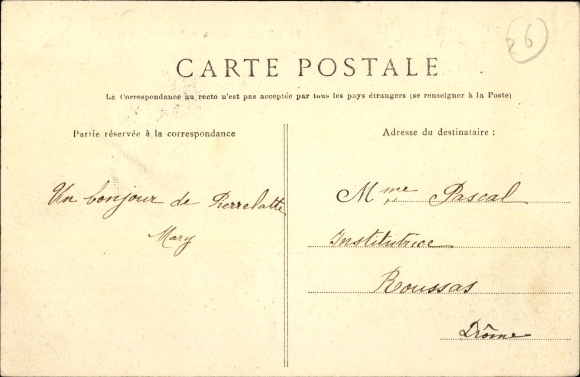 26
CARTE POSTALE
La Correspondance au recto n'est pas acceptée par tous les pays étrangers (se renseigner à la Poste)
Partie réservée à la correspondance
Un bonjour de Pierrelatte
Mary
Adresse du destinataire :
Mme Pascal
Institutrice
Roussas
Drôme